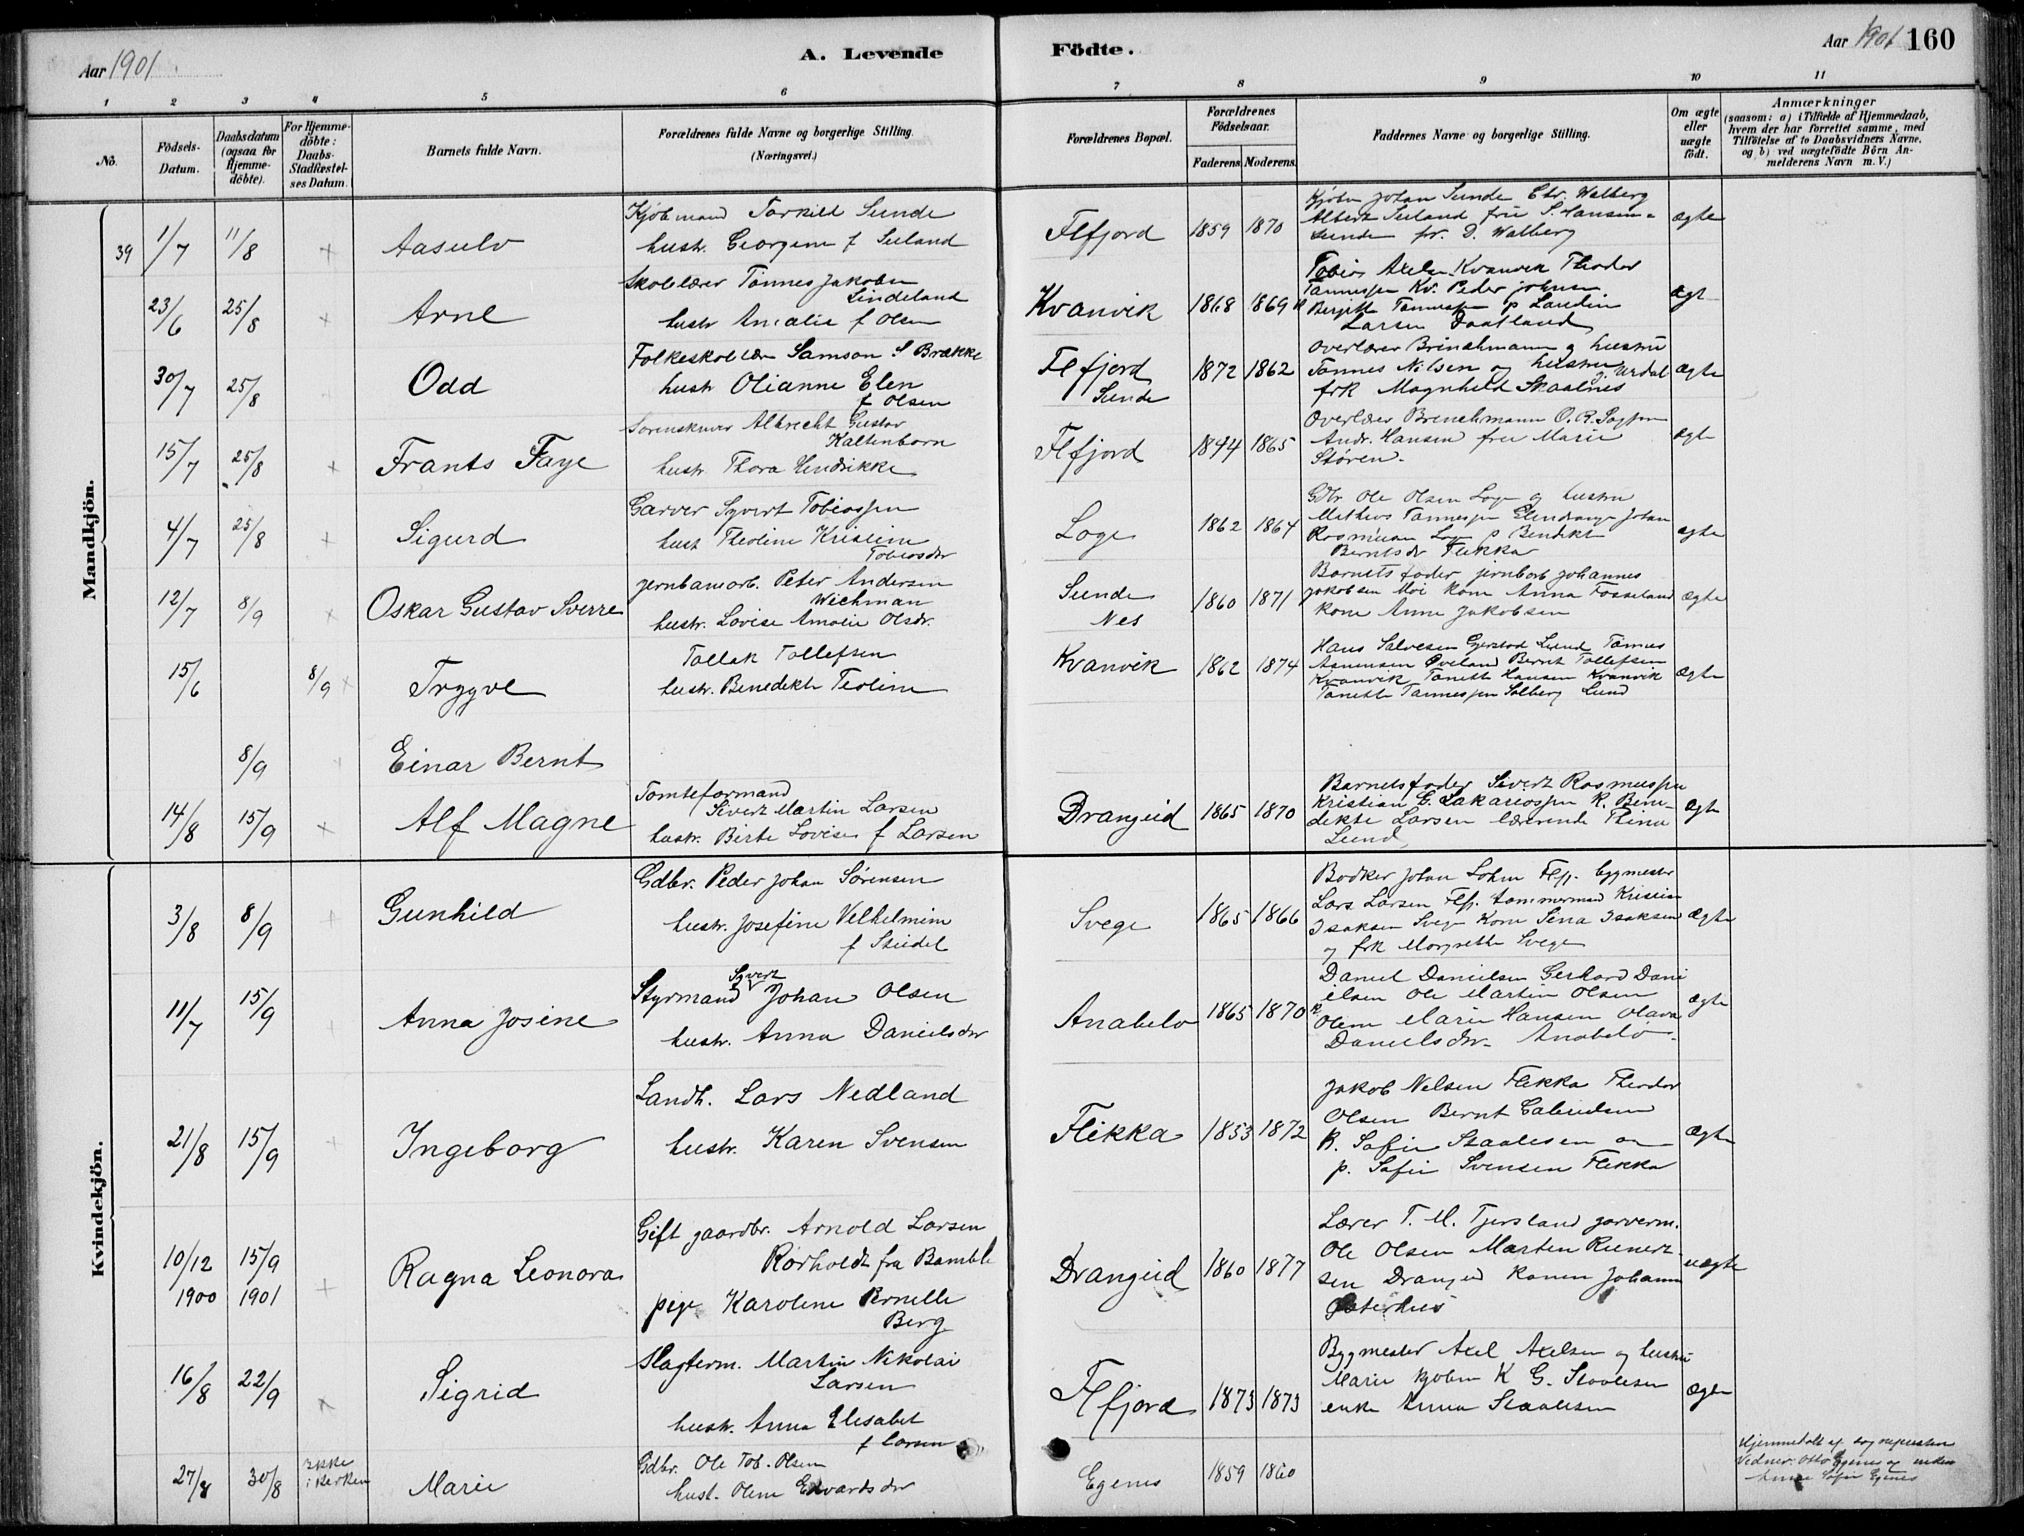 Aar 1901
A. Levende
Födte.
Aar 1901 160
1 2 3 4 5 6
7 8 9 10 11
No.
Födsels-Datum.
Daabsdatum (ogsaa for Hjemme-döbte).
For Hjemme-döbte: Daabs-Stadfæstel-ses Datum.
Barnets fulde Navn.
Forældrenes fulde Navne og borgerlige Stilling.
(Næringsvei.)
Forældrenes Bopæl.
Forældrenes Födselsaar.
Faderens. Moderens.
Faddernes Navne og borgerlige Stilling.
Om ægte eller uægte födt.
Anmærkninger
(saasom: a) i Tilfælde af Hjemmedaab, hvem der har forrettet samme, med Tilföielse af to Daabsvidners Navne, og b) ved uægtefödte Börn An-melderens Navn m. V.)
Mandkjön.
39 1/7 11/8 + Aasulv
Kjöbmand Torkild Sunde
hustr. Georgine f Seland
Flfjord 1859 1870
Kjøbm Johan Sunde Chr. Walberg
Albert Seland frü S. Hansen
Sunde fr. D. Walberg
ægte
23/6 25/8 + Arne
Skolelærer Tönnes Jakobsen
Lindeland
hustr Amalie f Olsen
Kvanvik 1868 1869
Tobias Axelsen Kvanvik Theodor
Tønnessen Kv. Peder Johnsen
Birgitte Tønnessen p Laudine
Larsen Daatland
ægt
30/7 25/8 Odd
Folkeskolelær Samson S Brække
hustr Olianne Elen
f Olsen
Flfjord
Sunde
1872 1862
Overlærer Brinchmann g hustru
Tönnes Nilsen og hustru Urdal
frk Magnhild Skaalnes
ægte
15/7 25/8 + Frants Faye
Sorenskriver Albrecht Gustav
Kaltenborn
hustr. Thora Hendrikke
Flfjord 1844 1865
Overlærer Brinchmann O. R.
Andr. Hansen frü Marie
Støren.
ægte
4/7 25/8 + Sigurd
Garver Syvert Tobiassen
hust Theoline Kristine
Tobiasdr
Loge 1862 1864
Gdbr Ole Olsen Loge og hustru
Mathias Tønnessen Johan
Rasmusen Loge p Bendikte
Berntsdr Flikka
ægte
12/7 8/9 × Oskar Gustav Sverre
jernbanearb. Peter Andersen
Wichman
hustr. Lovise Amalie Olsdr.
Sunde
Nes
1860 1871
Barnets fader jernbarb Johannes
Jakobsen Moi kone Anna Fosseland
kone Anne Jakobsen
ægte
15/6 8/9 × Trygve
Tollak Tollefsen
hustr. Benedikte Teoline
Kvanvik 1862 1874
Hans Salvesen Gjerstad Lund Tönnes
Asmunsen Øveland Bernt Tollefsen
Kvanvik Tanette Hansen Kvanvik
Tanette Tønnessen Solberg Lund
ægte
8/9 Einar Bernt
14/8 15/9 × Alf Magne
Tomteformand
Sivert Martin Larsen
hustr. Birte Lovise f Larsen
Drangeid 1865 1870
Barnetsfader Sivert Rasmussen
Kristian G. Sakariassen K. Bene-
dikte Larsen lærerinde Thina
Lund
ægte
Kvindekjön.
3/8 8/9 + Gunhild
Gdbr. Peder Johan Sörensen
hustr. Josefine Velhelmine
f Stridel
Svege 1865 1866
Bødker Johan Flfj. byggmester
Lars Larsen Flfj. tømmermand Kristian
Isaksen Svege Kone Sina Isaksen
og frk Margrethe Svege
ægte
11/7 15/9 Anna Josine
Styrmand Syvert Johan Olsen
hustr. Anna Danielsdr
Anabelø 1865 1870
Daniel Danielsen Gerhard Dani
elsen Ole Martin Olsen
k Oline Marie Hansen Olava
Danielsdr. Anabelø.
ægte
21/8 15/9 + Ingeborg
Landh. Lars Nedland
hustr. Karen Svensen
Flikka 1853 1872
Jakob Nelsen Flikka Theodor
Olsen Bernt Gabrielsen
K. Sofie Staalesen og
p. Sofie Svensen Flikka
ægte
10/12 1900 15/9 1901 + Ragna Leonora
Gift gaardbr. Arnold Larsen
Rörholdt fra Bamble
pige Karoline Pernelle
Berg
Drangeid 1860 1877
Lærer T. M. Tjersland garverm.
Ole Olsen Marten Reinert-
sen Drangeid konen Johanne
Østerhus
uægte
16/8 22/9 × Sigrid
Slagterm. Martin Nikolai
Larsen
hustr. Anna Elisabet
f Larsen
Flfjord 1873 1873
Bygmester Axel Axelsen og hustru
Marie kjøbm K G. Staalesen
enke Anna Staalesen
ægte
27/8 30/8 Ikke
i kirken
Marie
Gdbr. Ole Tob. Olsen
hust. Oline Edvardsdr
Egenes 1859 1860
Hjemmedøbt af sognepresten
Vidner: Otto Egenes og enken
Anne Sofie Egenes